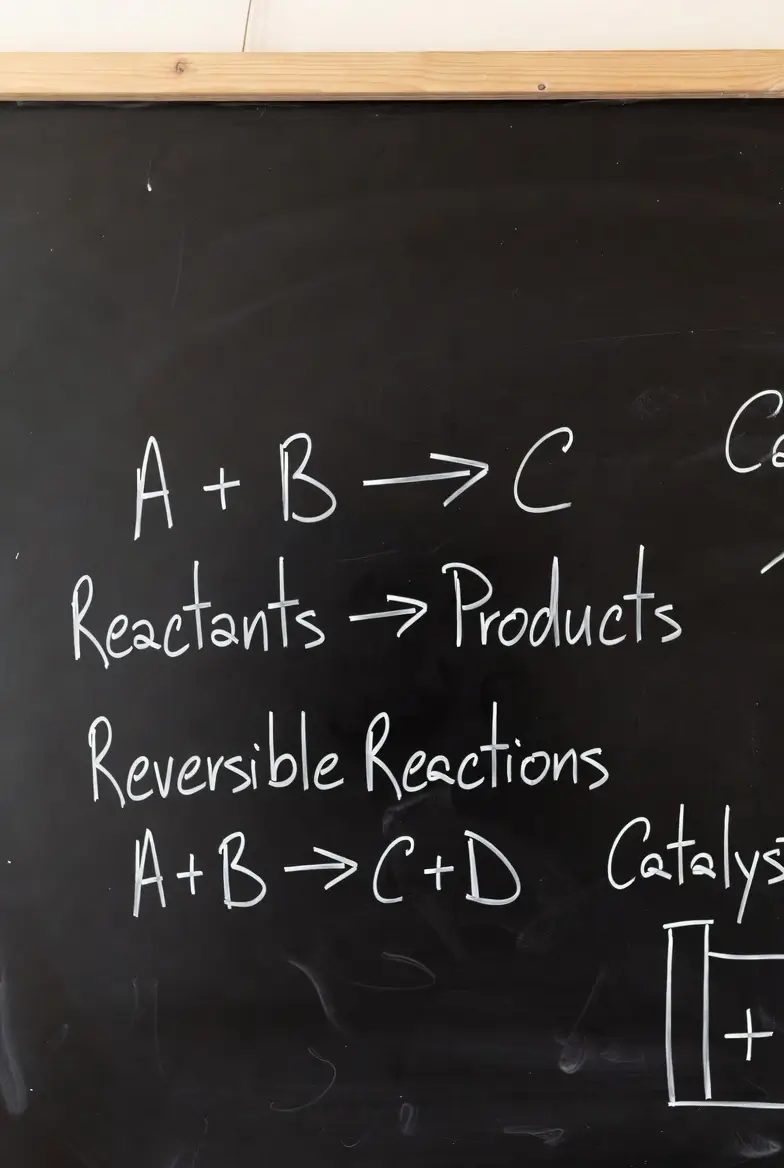 A + B → C
Reactants → Products
Reversible Reactions
A+B → C+D
+